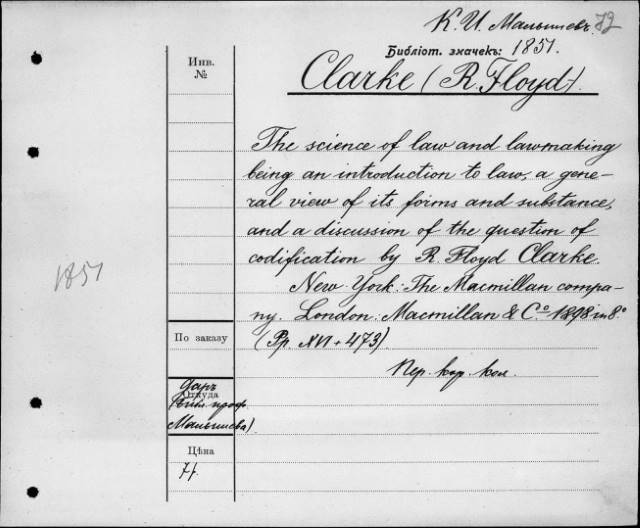 К. И. Малышевъ. 72
Библіот. значекъ: 1851.
Инв.
№
Clarke (R. Floyd).
The science of law and lawmaking
being an introduction to law, a gene-
ral view of its forms and substance,
and a discussion of the question of
codification by R. Floyd Clarke.
1851
New York: The Macmillan compa-
ny. London: Macmillan & Cº 1898 in 8º
По заказу
(Pp. XVI + 473).
Пер. кор. кол.
Даръ
Откуда
(библ. проф.
Малышева)
Цѣна